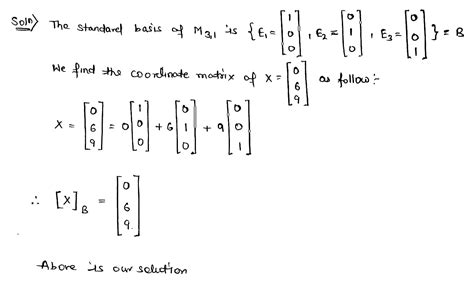 Soln) The standard basis of M3,1 is {E1 = [1 0 0], E2 = [0 1 0], E3 = [0 0 1]} = B
We find the coordinate matrix of X = [0 6 9] as follow:-
X = [0 6 9] = 0[1 0 0] + 6[0 1 0] + 9[0 0 1]
∴ [X]B = [0 6 9.]
Above is our solution